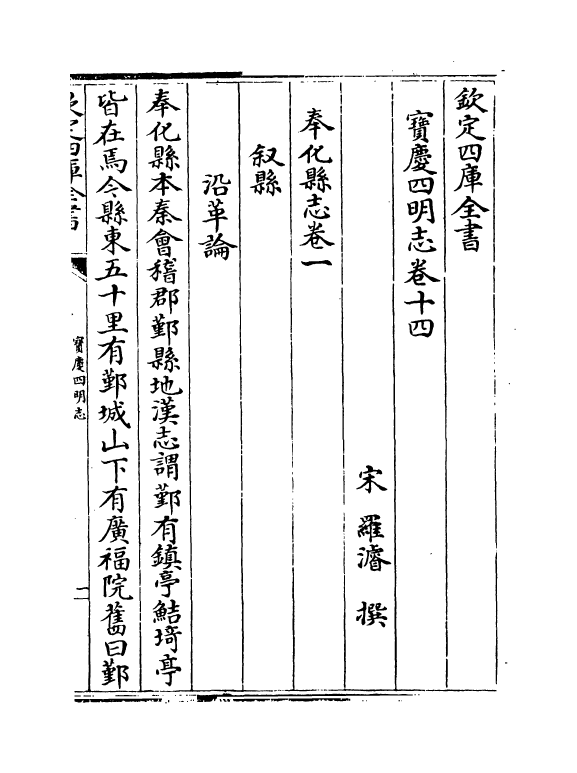 欽定四庫全書
寶慶四明志卷十四
宋 羅濬 撰
奉化縣志卷一
叙縣
沿革論
奉化縣本秦會稽郡鄞縣地漢志謂鄞有鎮亭鮚埼亭
皆在焉今縣東五十里有鄞城山下有廣福院舊曰鄞
欽定四庫全書
寶慶四明志